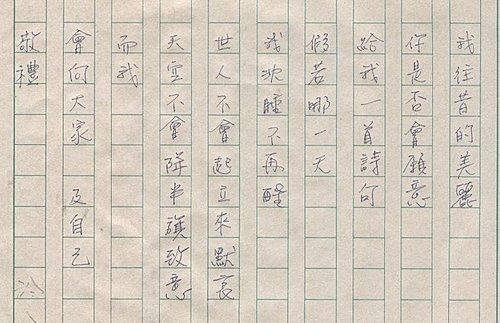 我往昔的美麗
你是否會願意
給我一首詩句
倘若哪一天
我沈睡不再醒
世人不會起立來默哀
天空不會降半旗致意
而我
會向大家 及自己
敬禮